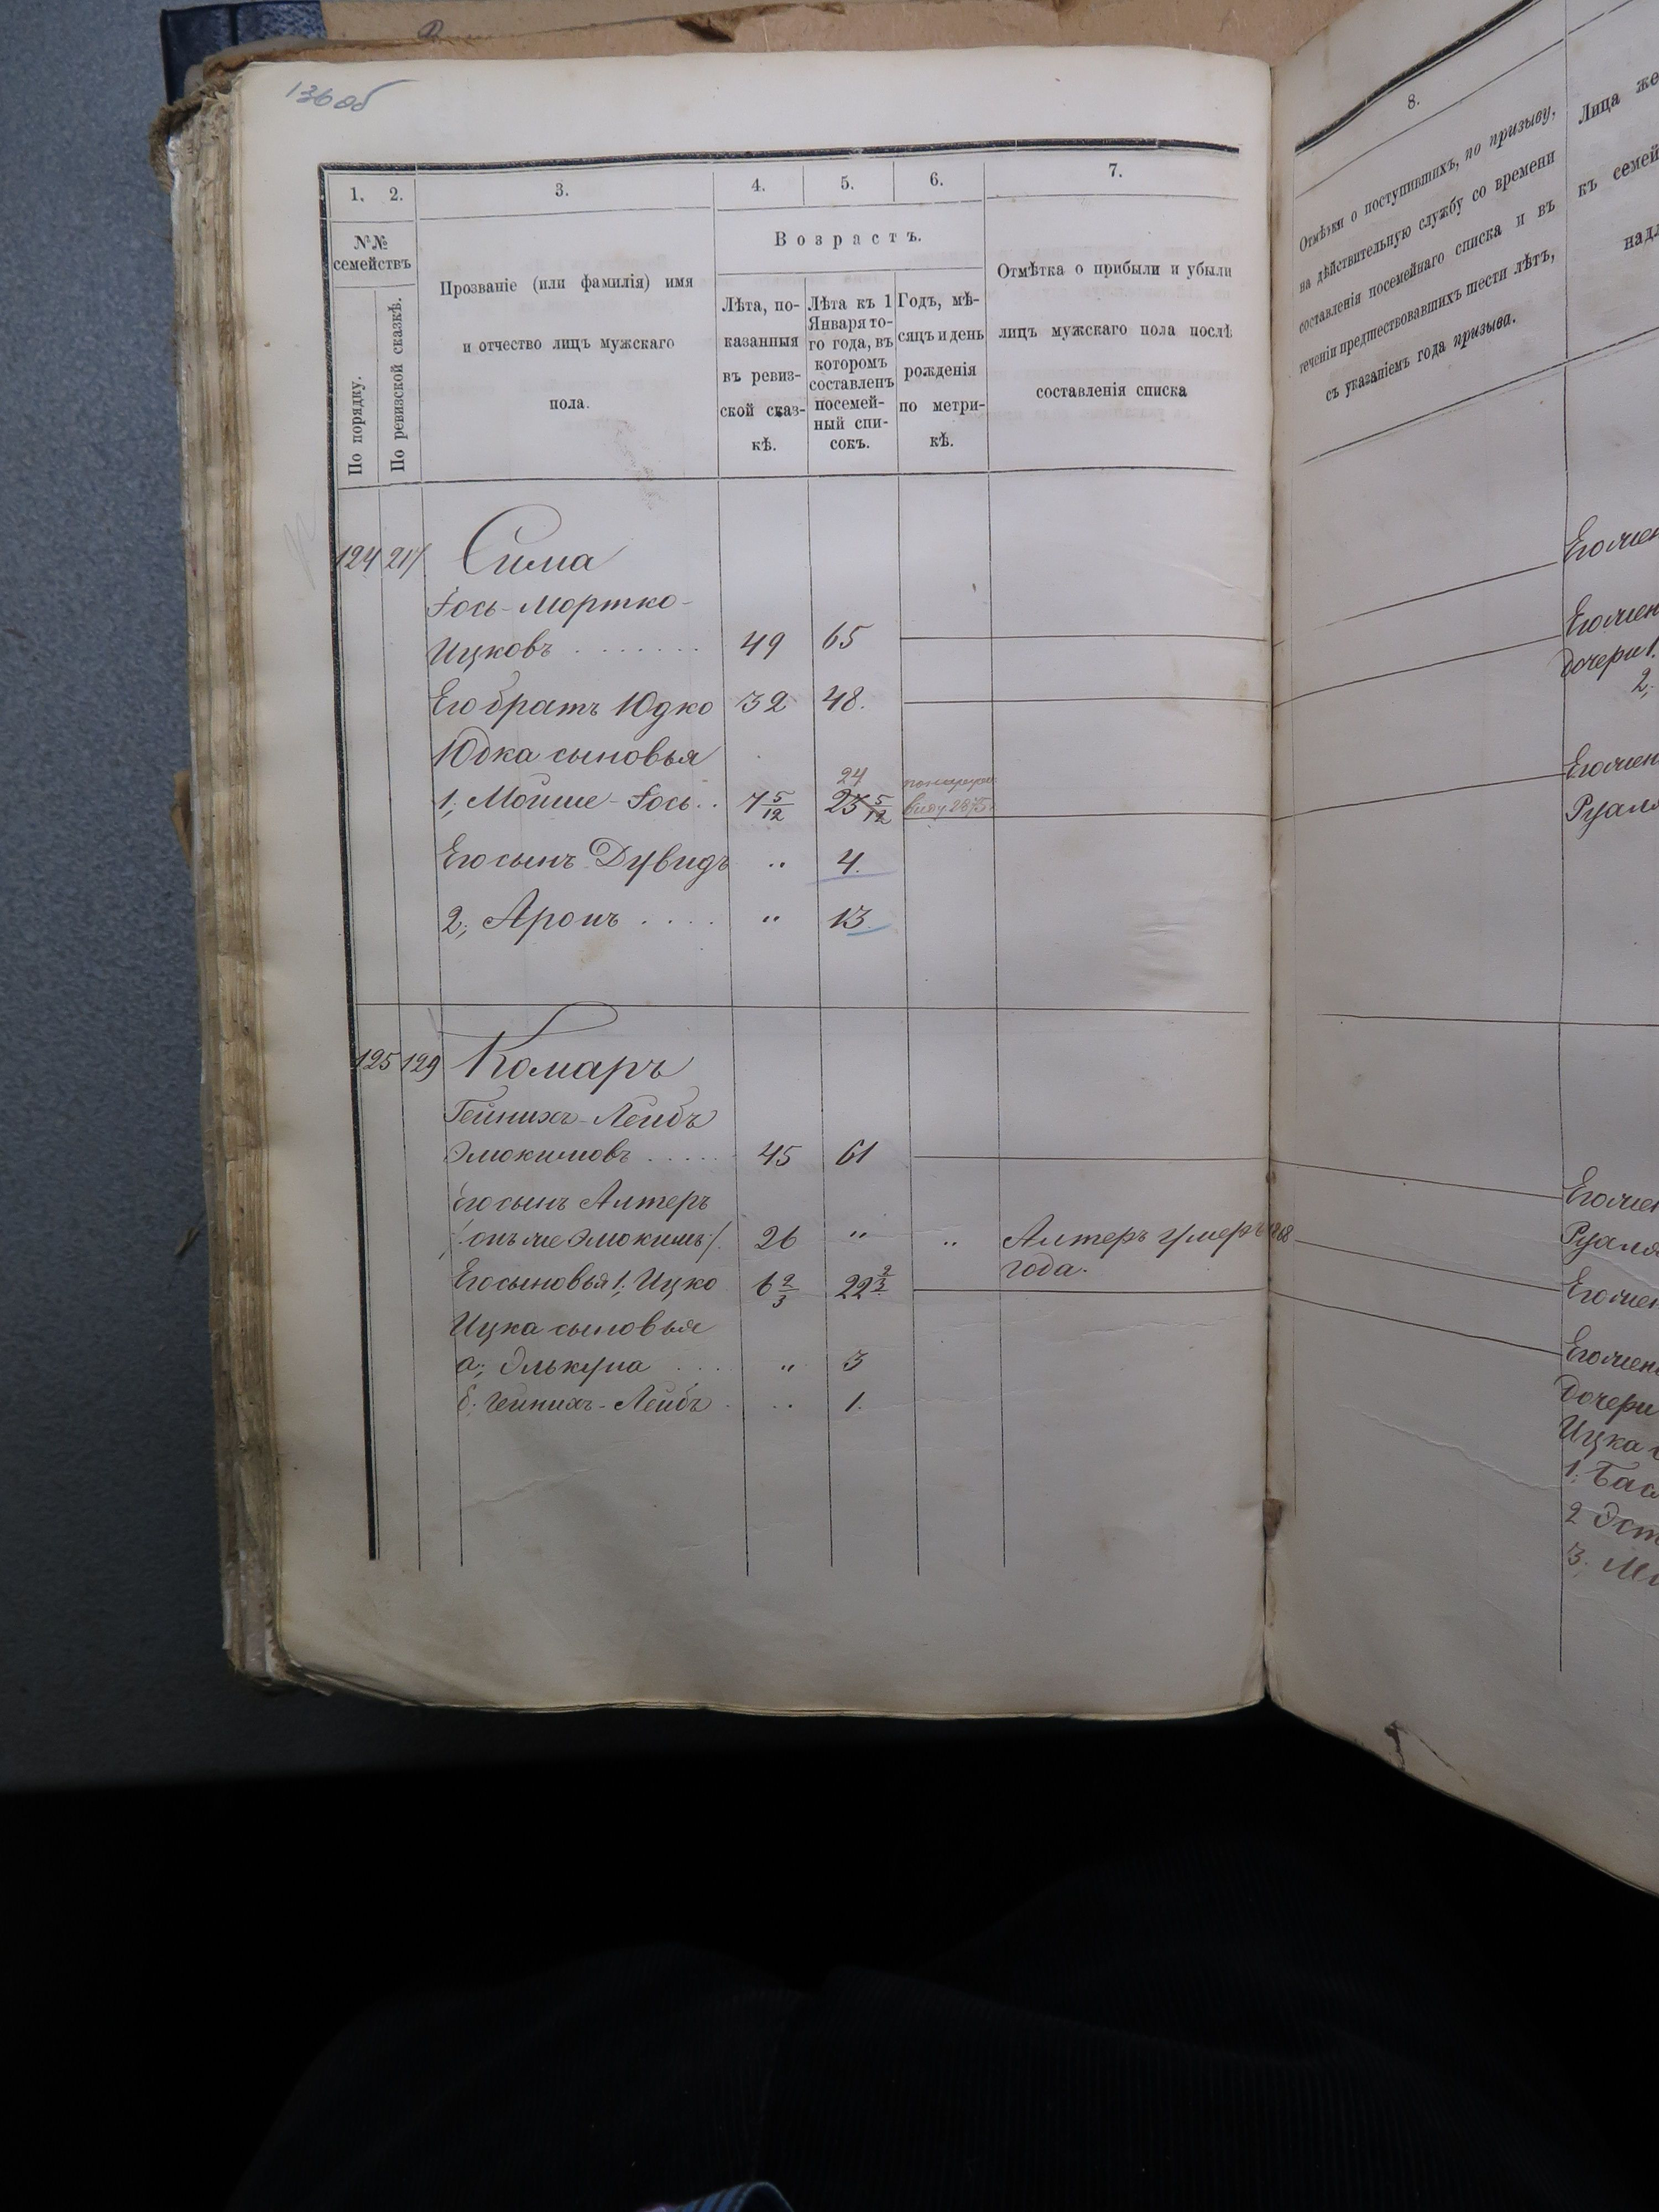 136 об
1. 2. 3. 4. 5. 6. 7.
№№ семействъ
По порядку.
По ревизской сказкѣ.
Прозваніе (или фамилія) имя
и отчество лицъ мужскаго
пола.
Возрастъ.
Лѣта, по-
казанныя
въ ревиз-
ской сказ-
кѣ.
Лѣта къ 1
Января то-
го года, въ
которомъ
составленъ
посемей-
ный спи-
сокъ.
Годъ, мѣ-
сяцъ и день
рожденія
по метри-
кѣ.
Отмѣтка о прибыли и убыли
лицъ мужскаго пола послѣ
составленія списка
124 217 Сима
Іось-Мортко-
Ицковъ 49 65
Его братъ Юдко 32 48.
Юдка сыновья
24
1; Мойше-Іось 7 5/12 23 5/12
Его сынъ Дувидъ " 4.
2; Аронъ " 13.
125 129 Комаръ
Гейнихъ-Лейбъ
Элюкимовъ 45 61
Его сынъ Алтеръ
/:онъ же Элюкимъ:/ 26 " " Алтеръ умеръ 1868
года.
Его сыновья 1; Ицко 6 2/3 22 2/3
Ицка сыновья
а; Элькуна " 3
б; Гейнихъ-Лейбъ " 1.
8.
Отмѣтки о поступившихъ, по призыву,
на дѣйствительную службу со времени
составленія посемейнаго списка и въ
теченіи предшествовавшихъ шести лѣтъ,
съ указаніемъ года призыва.
Лица же
къ семей
надл
Его жен
Его жен
дочери 1.
2;
Его жен
Рухля
Его жен
Рухля
Его жен
Его жен
дочери
Ицка
1;
2 Эст
3;